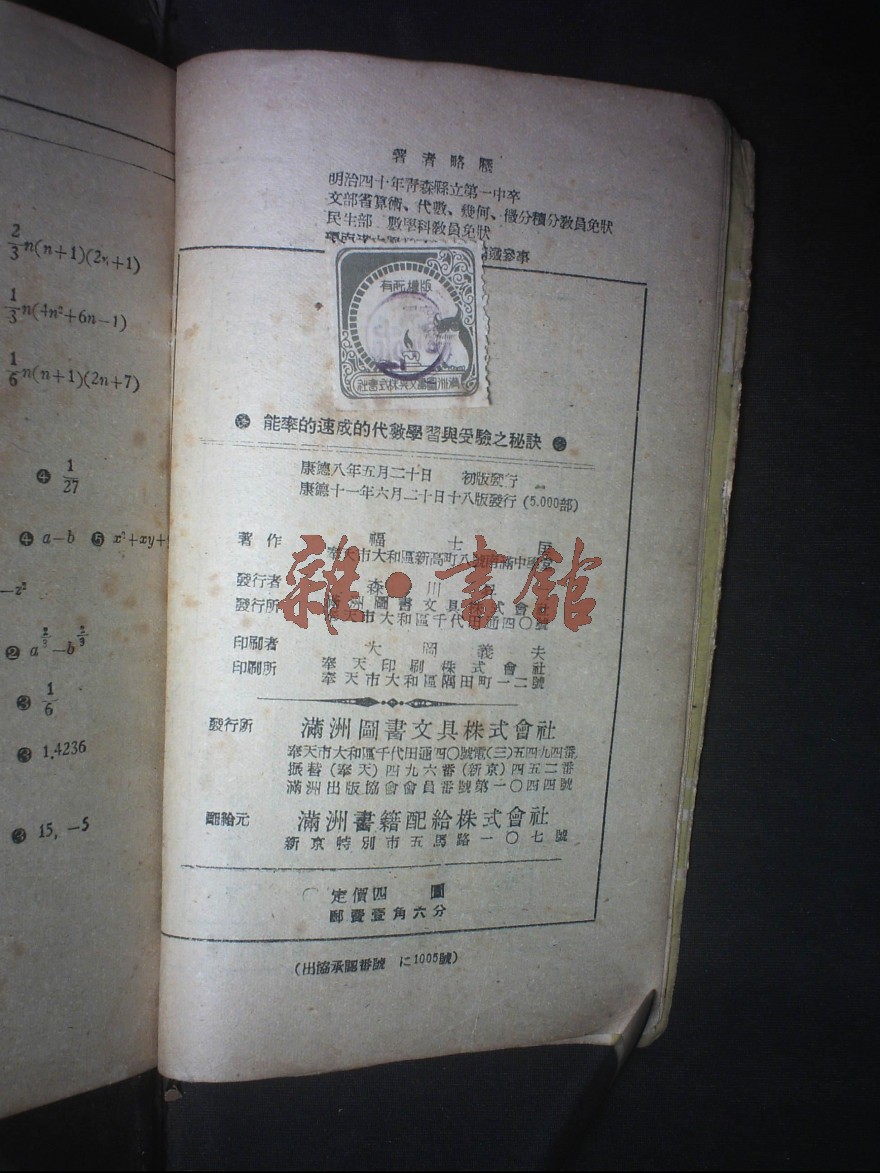 2/3 n(n+1)(2n+1)
1/3 n(4n²+6n-1)
1/6 n(n+1)(2n+7)
❹ 1/27
❹ a-b ❺ x²+xy+
-z²
❸ 1/6
❸ 1.4236
❸ 15, -5
著者略歷
明治四十年靑森縣立第一中卒
文部省算術、代數、幾何、微分積分敎員免狀
民生部 數學科敎員免狀
版權所有
滿洲圖書文具株式會社
能率的速成的代數學習與受驗之秘訣
康德八年五月二十日 初版發行
康德十一年六月二十日十八版發行 (5.000部)
著作 福士
奉天市大和區新高町八號南滿中學堂
發行者 森川
發行所 滿洲圖書文具株式會社
奉天市大和區千代田通四〇號
印刷者 大岡義夫
印刷所 奉天印刷株式會社
奉天市大和區隅田町一二號
發行所 滿洲圖書文具株式會社
奉天市大和區千代田通四〇號電(三)五四九四番
振替(奉天)四九六番(新京)四五二番
滿洲出版協會會員番號第一〇四四號
配給元 滿洲書籍配給株式會社
新京特別市五馬路一〇七號
定價四圓
郵費壹角六分
(出協承認番號 に1005號)
雜·書館